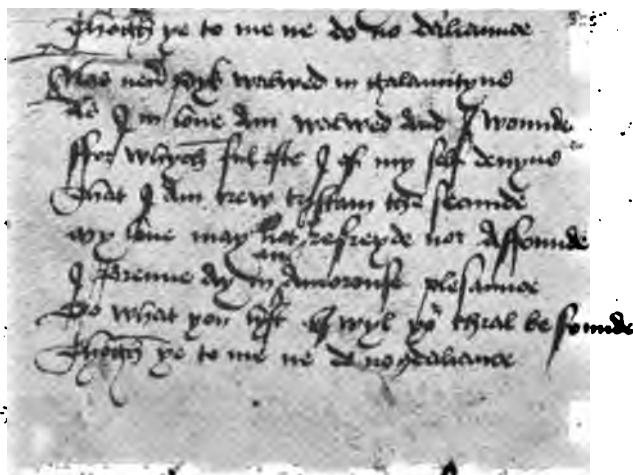 Thogh ye to me ne do no daliaunce
Nas neuer pyk walwed in galauntyne
As I in loue am walwed and I wounde
ffor whych ful ofte I of my self deuyne
That I am trew trystam the secunde
my loue may not refreyde nor affounde
I brenne ay in an amorouse plesaunce
Do what you lyst I wyl your thral be founde
Thogh ye to me ne do no daliance